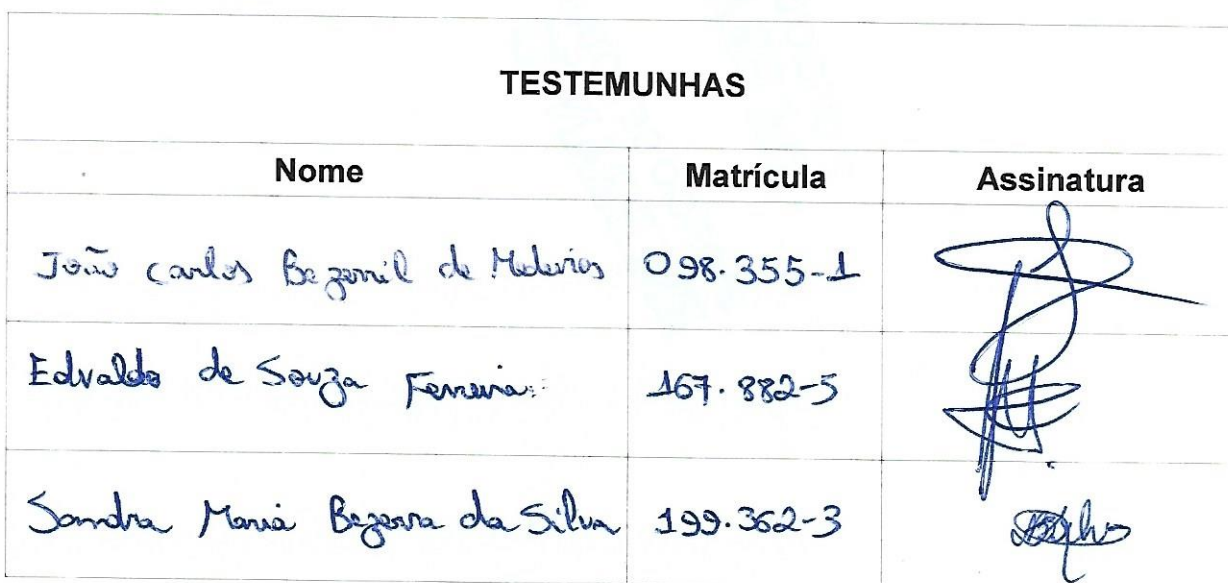 TESTEMUNHAS
Nome Matrícula Assinatura
João Carlos Bezerril de Medeiros 098.355-1
Edvaldo de Souza Ferreira 167.882-5
Sandra Maria Bezerra da Silva 199.362-3